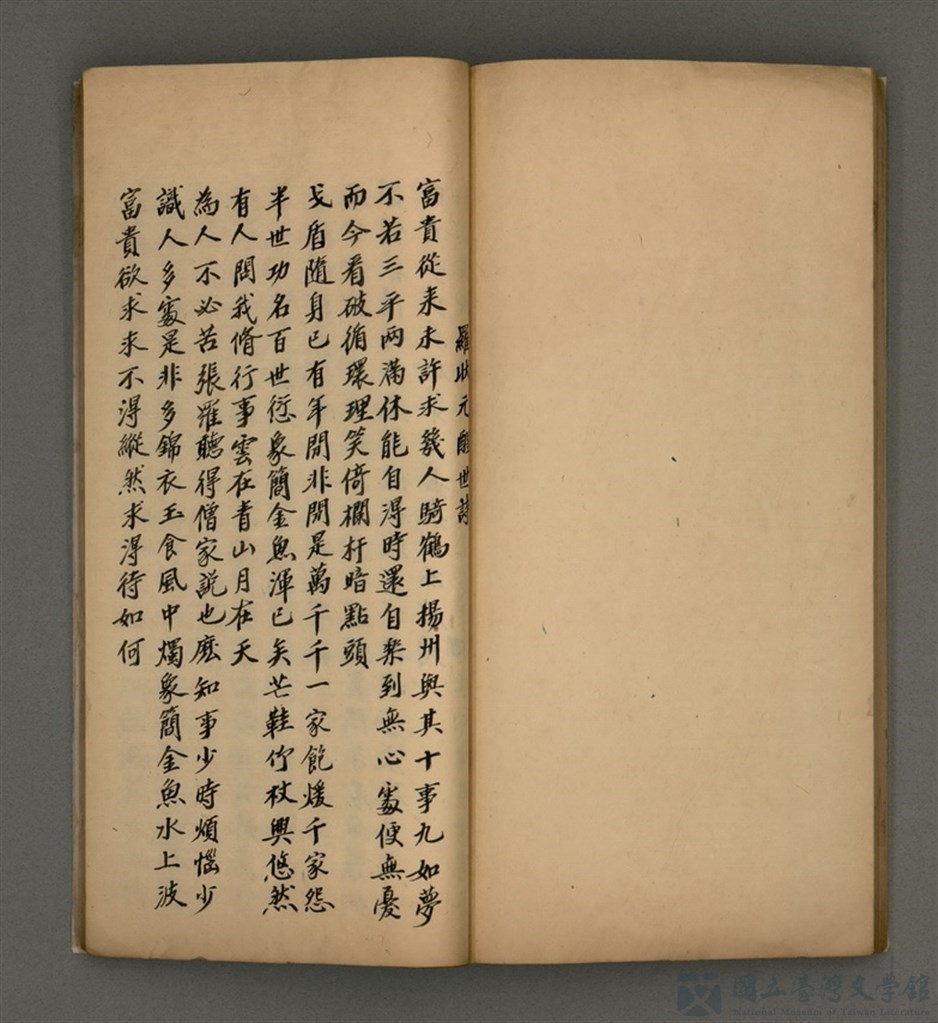 羅狀元醒世詩
富貴從来未許求幾人騎鶴上揚州與其十事九如夢
不若三平兩滿休能自淂時還自樂到無心處便無憂
而今看破循環理笑倚欄杆暗點頭
戈盾隨身已有年閒非閒是萬千千一家飽煖千家怨
半世功名百世愆象簡金魚渾已矣芒鞋竹杖興悠然
有人問我脩行事雲在青山月在天
為人不必苦張羅聽得僧家説也麽知事少時煩惱少
識人多處是非多錦衣玉食風中燭象簡金魚水上波
富貴欲求求不淂縱然求淂待如何
國立臺灣文学館
National Museum of Taiwan Literature